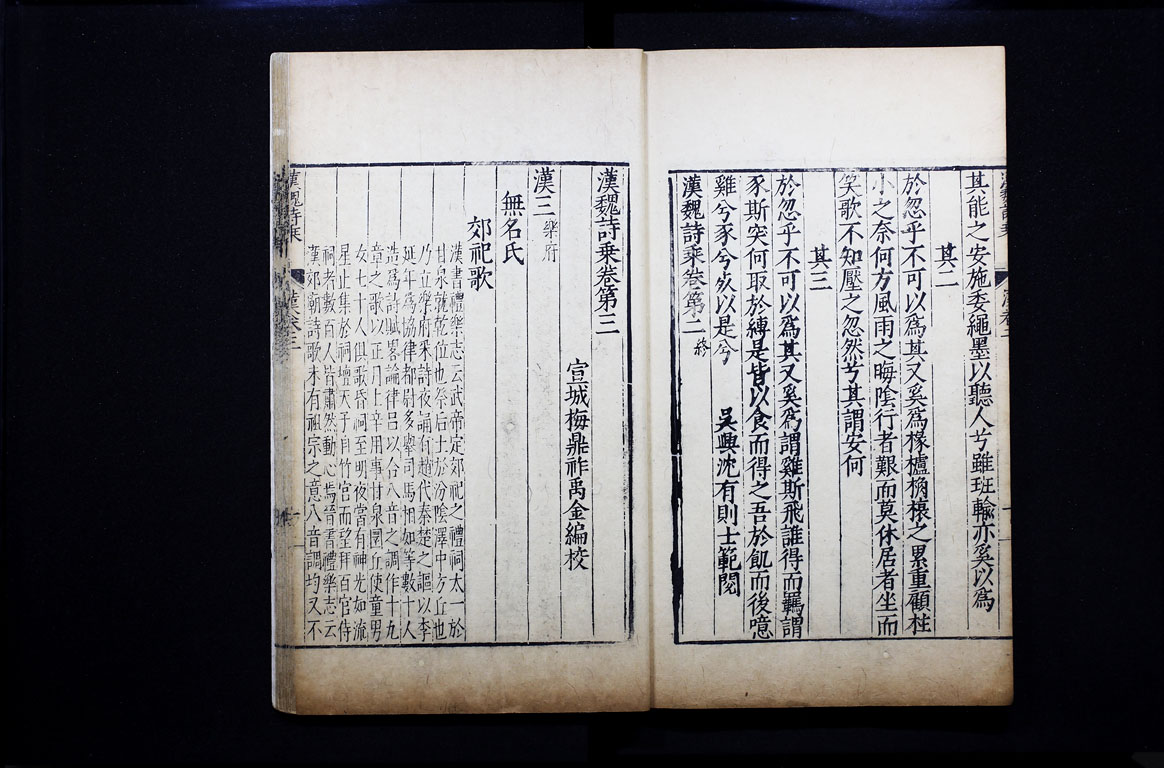 其能之安施委繩墨以聽人兮雖班輸亦奚以爲
其二
於忽乎不可以爲其又奚爲椽櫨桷榱之累重顧柱
小之奈何方風雨之晦陰行者艱而莫休居者坐而
笑歌不知壓之忽然兮其謂安何
其三
於忽乎不可以爲其又奚爲謂雞斯飛誰得而羈謂
豕斯突何取於縛是皆以食而得之吾於飢而後噫
雞兮豕兮死以是兮
吳興沈有則士範閱
漢魏詩乘卷第二 終
漢魏詩乘卷第三
宣城梅鼎祚禹金編校
漢三 樂府
無名氏
郊祀歌
漢書禮樂志云武帝定郊祀之禮祠太一於
甘泉就乾位也祭后土於汾陰澤中方丘也
乃立樂府采詩夜誦有趙代秦楚之謳以李
延年爲協律都尉多舉司馬相如等數十人
造爲詩賦畧論律呂以合八音之調作十九
章之歌以正月上辛用事甘泉圜丘使童男
女七十人俱歌昏祠至明夜常有神光如流
星止集於祠壇天子自竹宮而望拜百官侍
祠者數百人皆肅然動心焉晉書禮樂志云
漢郊廟詩歌未有祖宗之意八音調均又不
漢魏詩乘
漢卷三